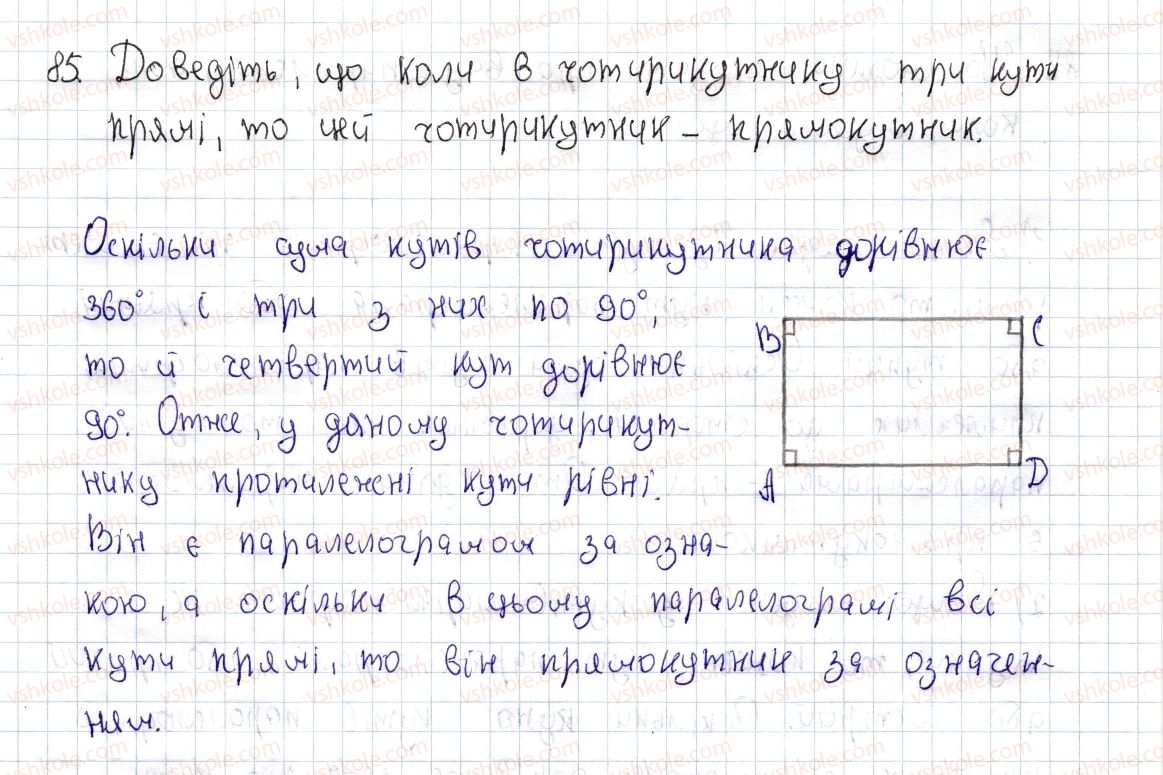 85. Доведіть, що коли в чотирикутнику три кути
прямі, то цей чотирикутник – прямокутник.
Оскільки сума кутів чотирикутника дорівнює
360° і три з них по 90°,
то й четвертий кут дорівнює
90°. Отже, у даному чотирикут-
нику протилежні кути рівні.
Він є паралелограмом за озна-
кою, а оскільки в цьому паралелограмі всі
кути прямі, то він прямокутник за означен-
ням.
B
C
A
D